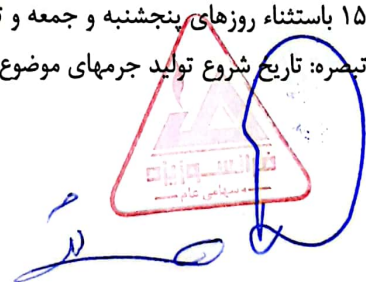 ۱۵ باستثناء روزهای پنجشنبه و جمعه و ت
تبصره: تاریخ شروع تولید جرمهای موضوع
فرانسوز یزد
سهامی عام